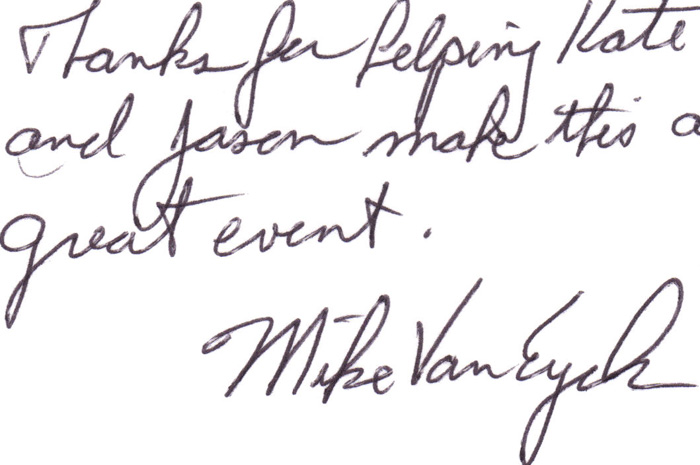 Thanks for helping Kate
and Jason make this a
great event.
Mike Van Eyck